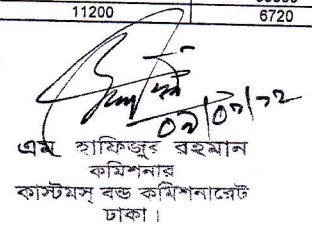 11200 6720
০৯/০৭/১২
এম হাফিজুর রহমান
কমিশনার
কাস্টমস্ বন্ড কমিশনারেট
ঢাকা।